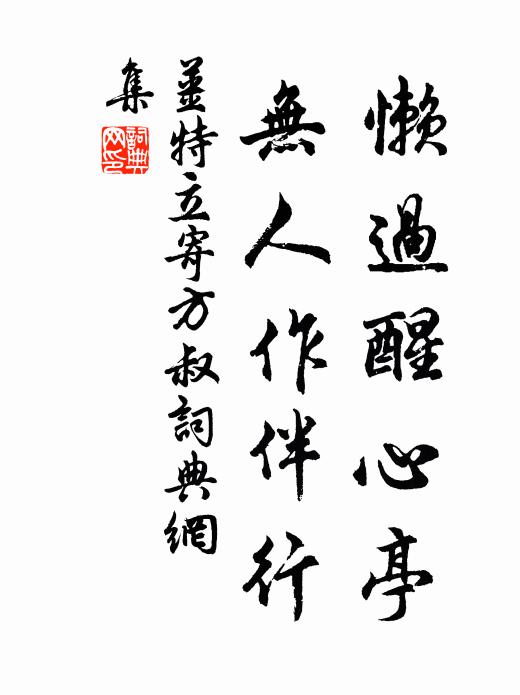 懶過醒心亭
無人作伴行
姜特立寄方叔詞典網
集
詞典網印